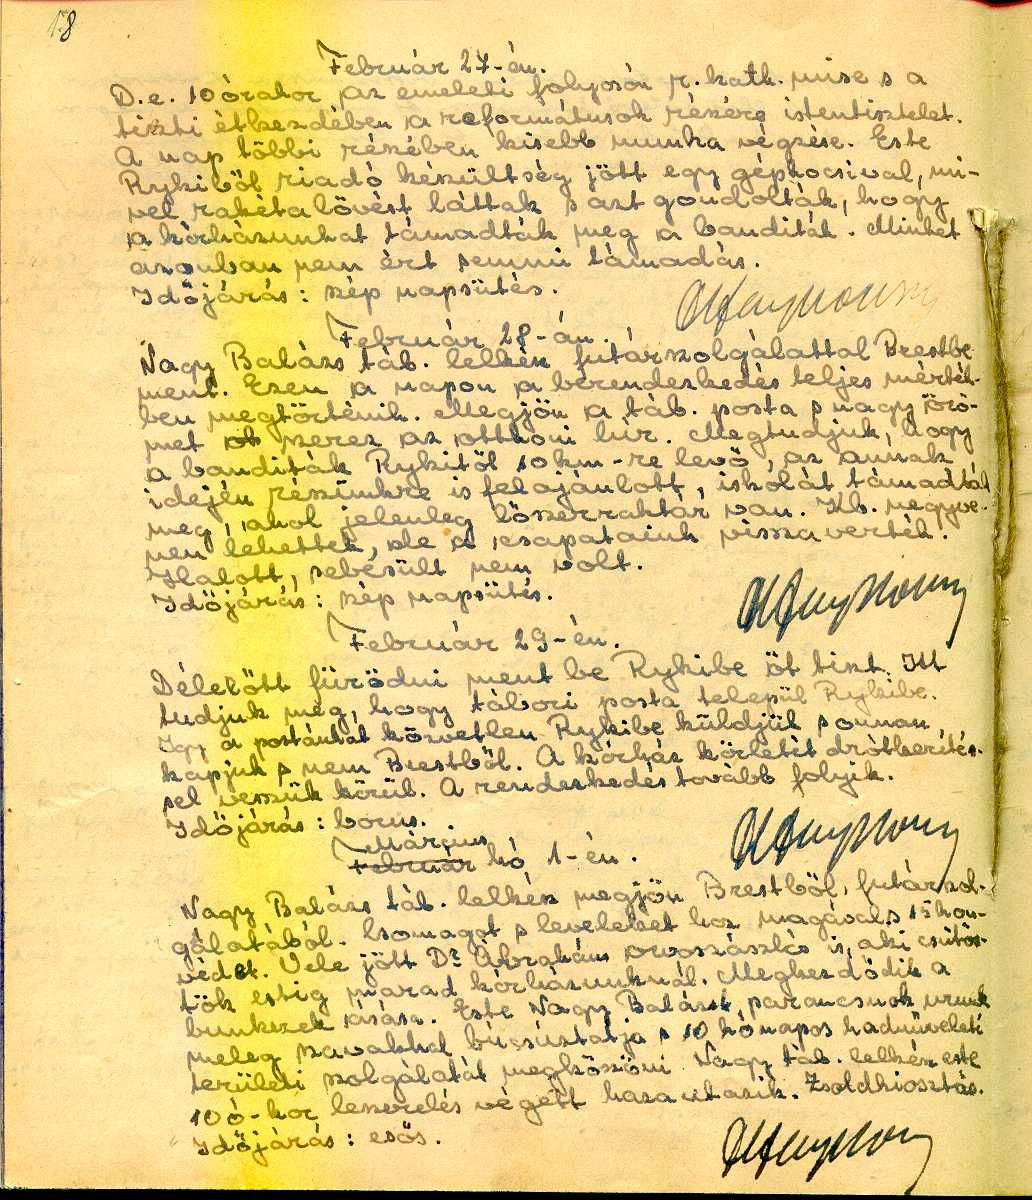 18
Február 27-én.
D.e. 10 órakor az emeleti folyosón r. kath. mise s a
tiszti étkezdében a reformátusok részére istentisztelet.
A nap többi részében kisebb munka végzése. Este
Rykiből riadó készültség jött egy gépkocsival, mi-
vel rakétalövést láttak s azt gondolták, hogy
a kórházunkat támadták meg a banditák. Minket
azonban nem ért semmi támadás.
Időjárás: szép napsütés.
Február 28-án.
Nagy Balázs táb. lelkész futárszolgálattal Brestbe
ment. Ezen a napon a berendezkedés teljes mérték-
ben megtörténik. Megjön a táb. posta s nagy örö-
met szerez az otthoni hír. Megtudjuk, hogy
a banditák Rykitől 10 km-re levő, az annak
idején részünkre is felajánlott, iskolát támadták
meg, ahol jelenleg lőszerraktár van. Kb. negyve-
nen lehettek, de a csapataink visszaverték.
Halott, sebesült nem volt.
Időjárás: szép napsütés.
Február 29-én.
Délelőtt fürödni ment be Rykibe öt tiszt. Itt
tudjuk meg, hogy tábori posta települ Rykibe.
Igy a postánkat közvetlen Rykibe küldjük s onnan
kapjuk s nem Brestből. A kórház körletét drótkerítés-
sel vesszük körül. A rendezkedés tovább folyik.
Időjárás: borus.
Március
Február hó 1-én.
Nagy Balázs táb. lelkész megjön Brestből, futárszol-
gálatából. Csomagot s leveleket hoz magával s 15 hon-
védet. Vele jött Dr Ábrahám orvoszászlós is, aki csütör-
tök estig marad kórházunknál. Megkezdődik a
bunkerek ásása. Este Nagy Balázst, parancsnok urunk
meleg szavakkal búcsúztatja s 10 hónapos hadműveleti
területi szolgálatát megköszöni. Nagy táb. lelkész este
10 ó-kor leszerelés végett haza utazik. Zsoldkiosztás.
Időjárás: esős.